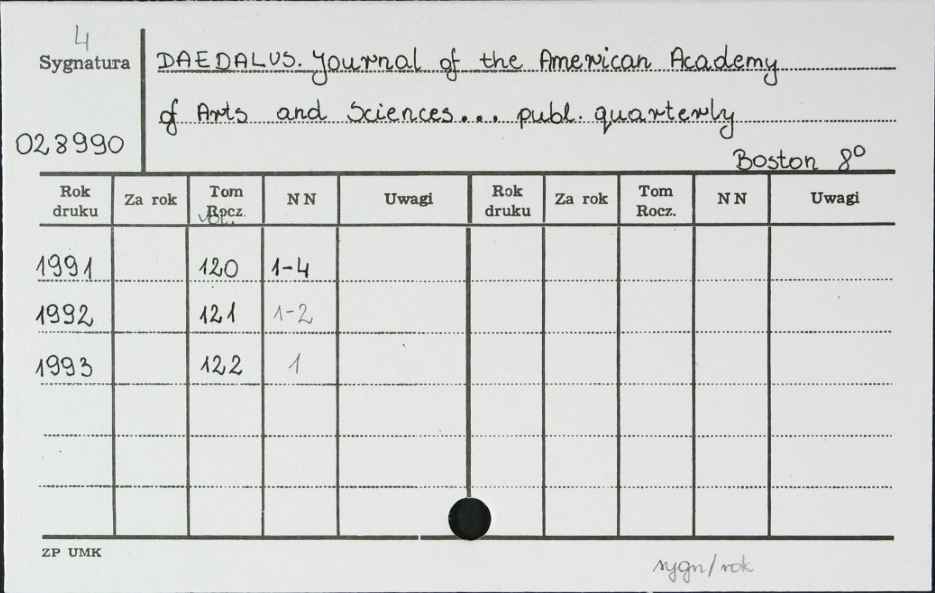 4
Sygnatura
DAEDALUS. Journal of the American Academy
of Arts and Sciences... publ. quarterly
028990
Boston 8°
Rok druku Za rok Tom Rocz. vol. NN Uwagi Rok druku Za rok Tom Rocz. NN Uwagi
1991 120 1-4
1992 121 1-2
1993 122 1
ZP UMK
sygn/rok